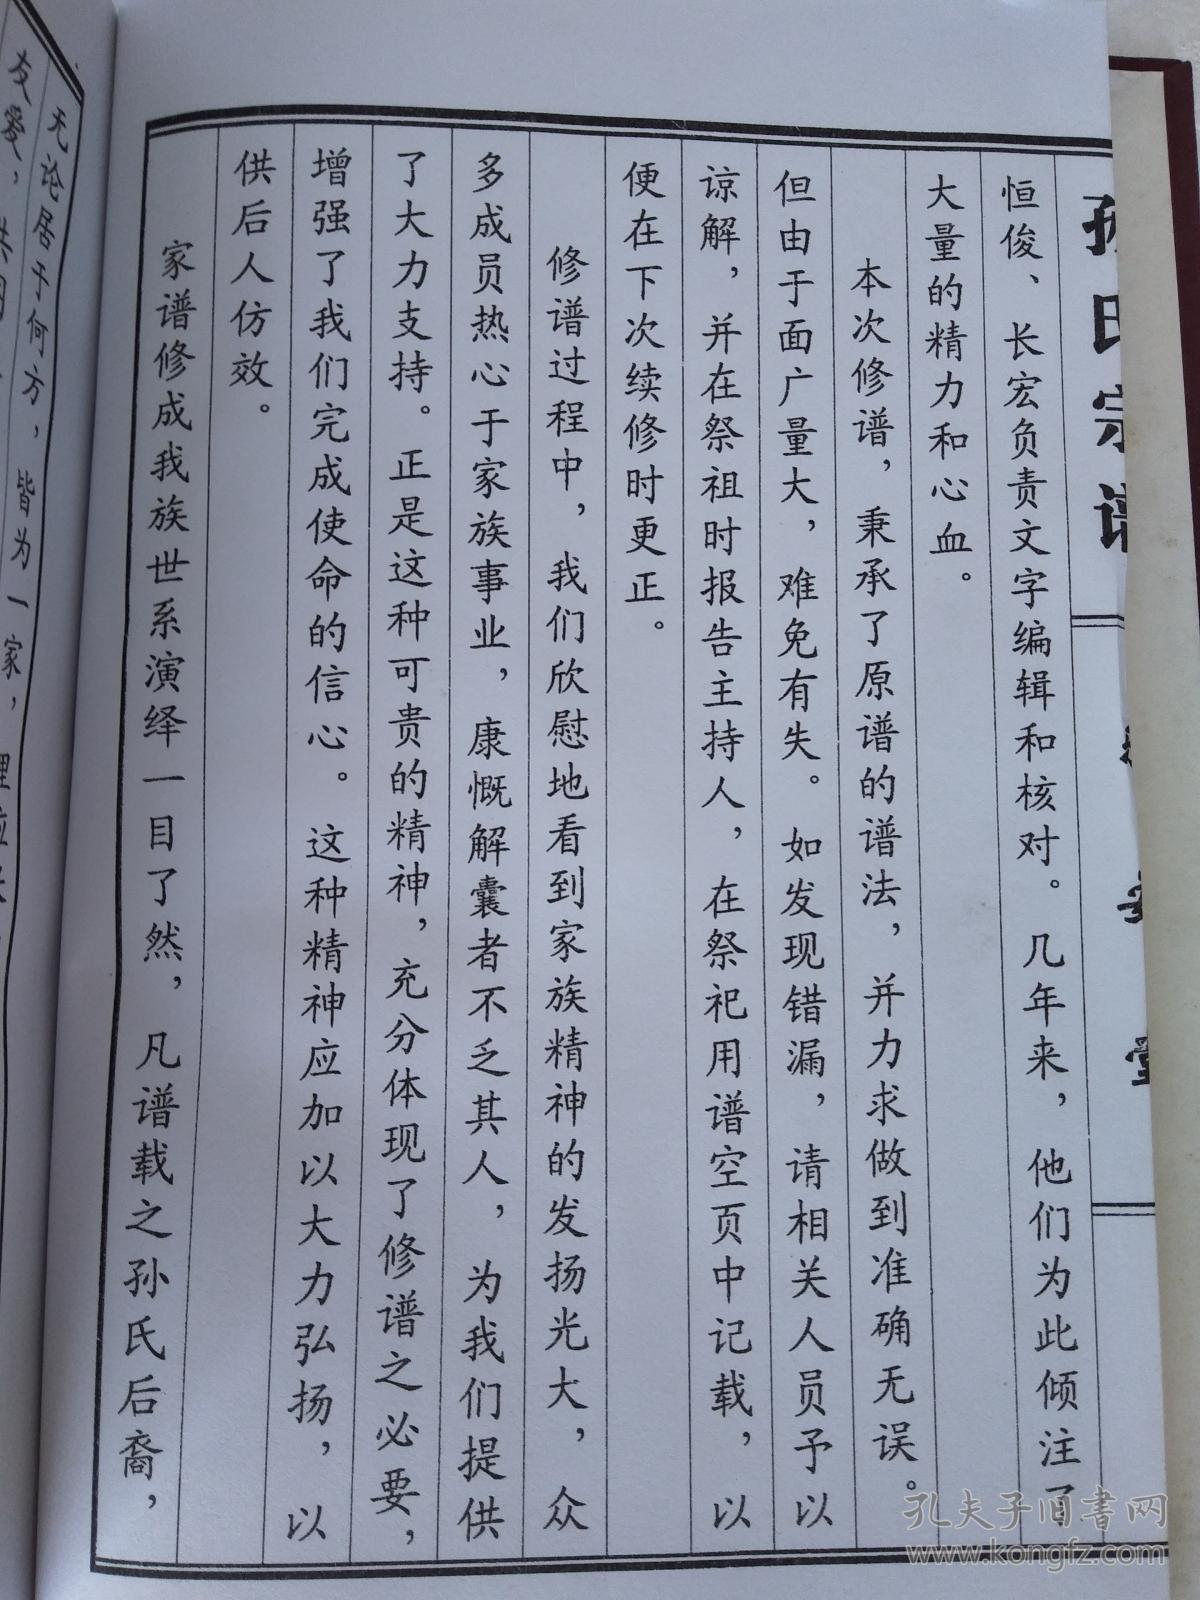 孙氏宗谱
堂
恒俊、长宏负责文字编辑和核对。几年来，他们为此倾注了
大量的精力和心血。
本次修谱，秉承了原谱的谱法，并力求做到准确无误。
但由于面广量大，难免有失。如发现错漏，请相关人员予以
谅解，并在祭祖时报告主持人，在祭祀用谱空页中记载，以
便在下次续修时更正。
修谱过程中，我们欣慰地看到家族精神的发扬光大，众
多成员热心于家族事业，康慨解囊者不乏其人，为我们提供
了大力支持。正是这种可贵的精神，充分体现了修谱之必要，
增强了我们完成使命的信心。这种精神应加以大力弘扬，以
供后人仿效。
家谱修成我族世系演绎一目了然，凡谱载之孙氏后裔，
无论居于何方，皆为一家，理应
友爱，共同
孔夫子旧书网
www.kongfz.com